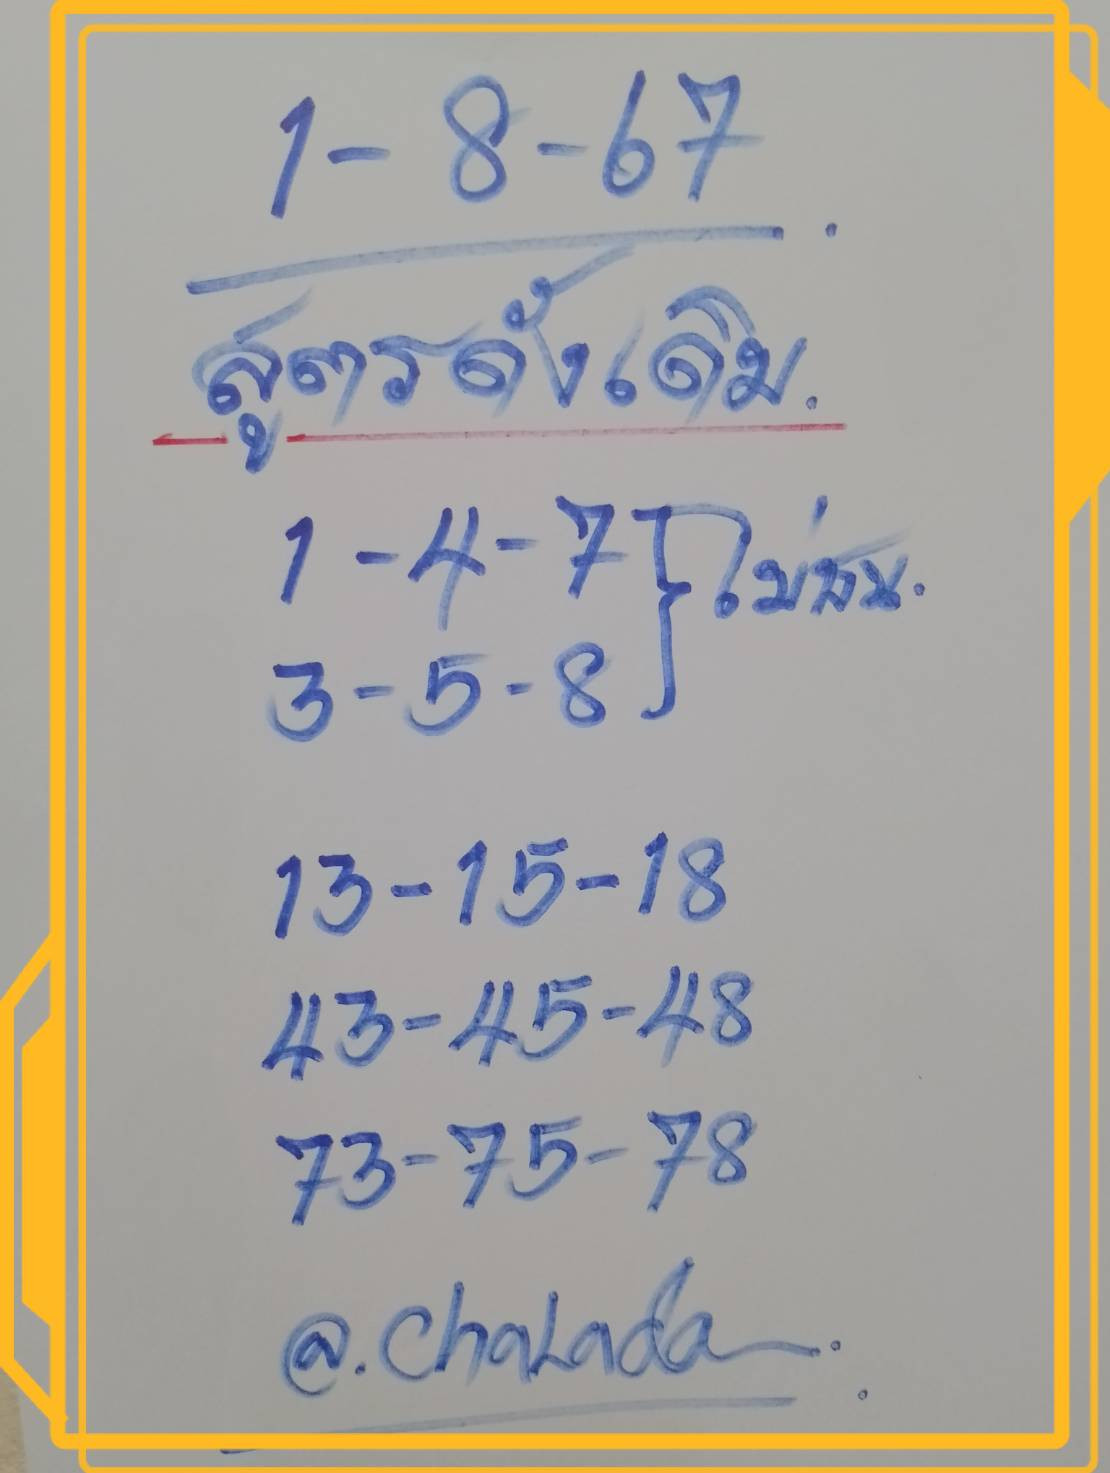 1-8-67
สูตรดั้งเดิม.
1-4-7 } ไม่ชน.
3-5-8
13-15-18
43-45-48
73-75-78
@.chaLada